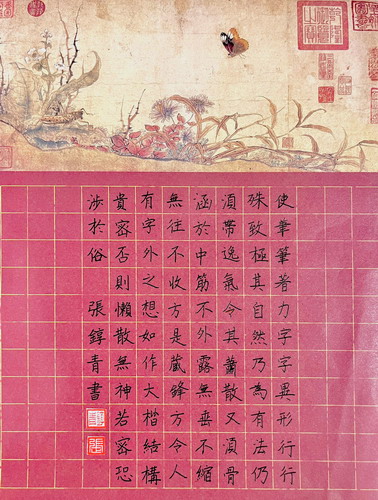 使筆筆著力字字異形行行
殊致極其自然乃為有法仍
須帶逸氣令其蕭散又須骨
涵於中筋不外露無垂不縮
無往不收方是藏鋒方令人
有字外之想如作大楷結構
貴密否則懶散無神若密恐
涉於俗 張錞青書